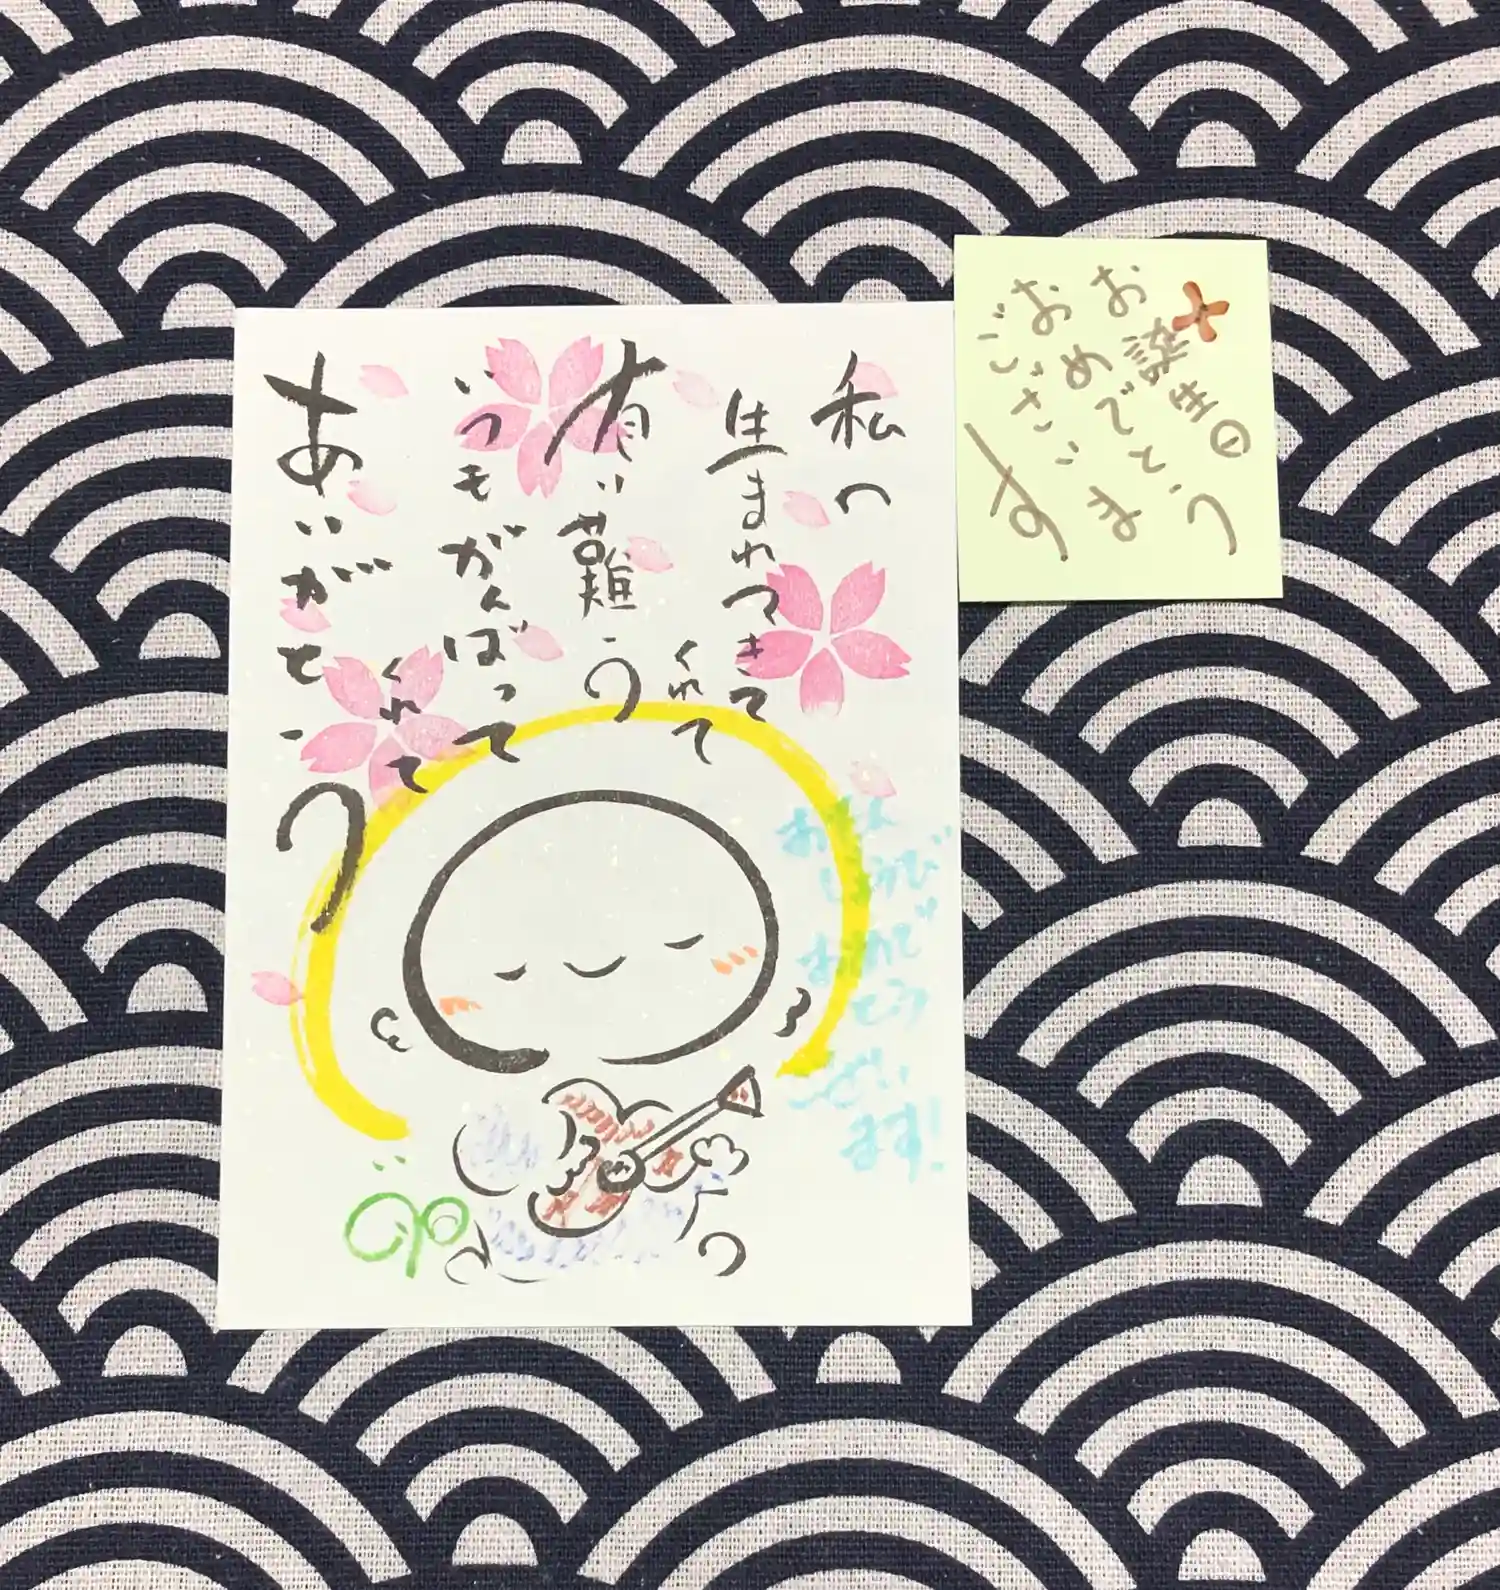 私へ
生まれてきて
くれて
有り難う
いつもがんばって
くれて
ありがとう
おたん
じょうび
おめで
とう
ござい
ます!
お誕生日
おめでとう
ございます